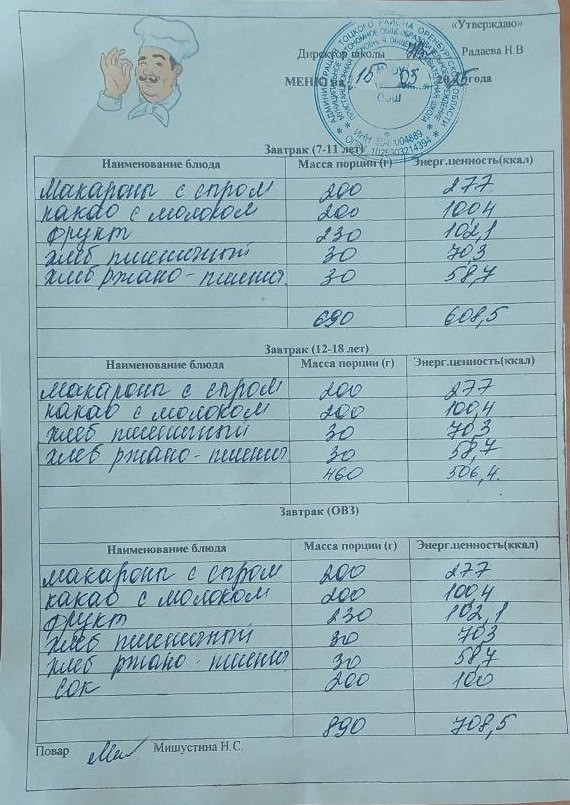 «Утверждаю»
Директор школы Радаева Н.В
МЕНЮ на 15 05 2025 года
АДМИНИСТРАЦИЯ ТОЦКОГО РАЙОНА ОРЕНБУРГСКОЙ ОБЛАСТИ
ОГРН 1025603214394
Завтрак (7-11 лет)
Наименование блюда Масса порции (г) Энерг.ценность(ккал)
Макароны с сыром 200 277
какао с молоком 200 100,4
фрукт 230 102,1
хлеб пшеничный 30 70,3
хлеб ржано-пшенич. 30 58,7
690 608,5
Завтрак (12-18 лет)
Наименование блюда Масса порции (г) Энерг.ценность(ккал)
Макароны с сыром 200 277
какао с молоком 200 100,4
хлеб пшеничный 30 70,3
хлеб ржано-пшенич 30 58,7
460 506,4
Завтрак (ОВЗ)
Наименование блюда Масса порции (г) Энерг.ценность(ккал)
Макароны с сыром 200 277
какао с молоком 200 100,4
фрукт 230 102,1
хлеб пшеничный 30 70,3
хлеб ржано-пшенич 30 58,7
сок 200 100
890 708,5
Повар Мишустина Н.С.